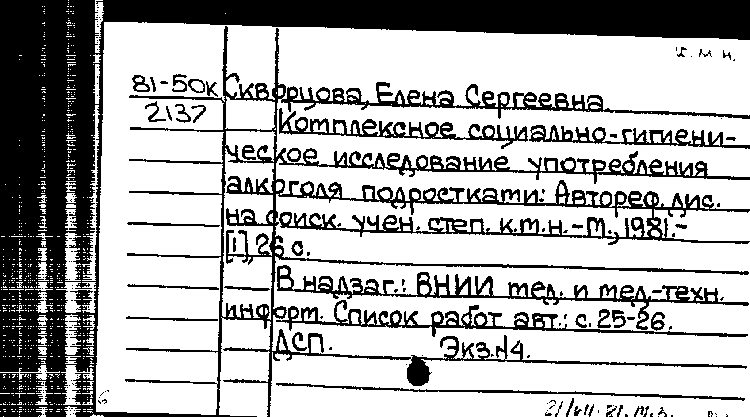 к.м.н.
81-50к Скворцова, Елена Сергеевна.
2137 Комплексное социально-гигиени-
ческое исследование употребления
алкоголя подростками: Автореф. дис.
на соиск. учен. степ. к.м.н. -М., 1981.-
[1], 26 с.
В надзаг.: ВНИИ мед. и мед.-техн.
информ. Список работ авт.: с. 25-26.
ДСП. Экз.№4.
6